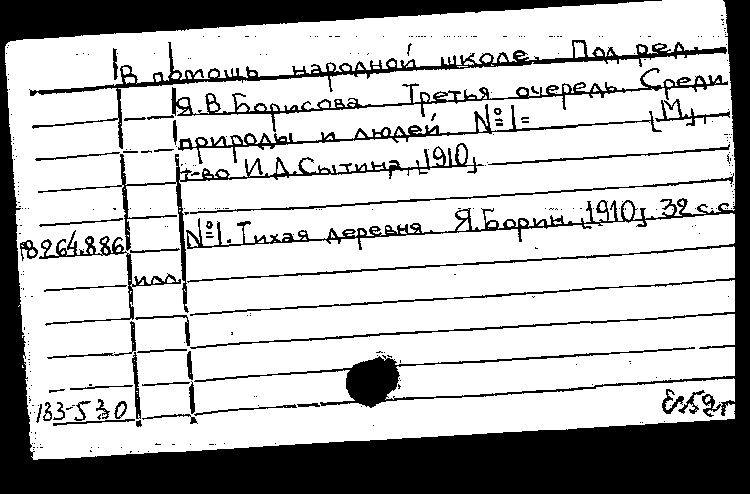 В помощь народной школе. Под ред.
Я.В.Борисова. Третья очередь. Среди
природы и людей. №1= [М.],
т-во И.Д.Сытина, [1910]
18264.886 №1. Тихая деревня. Я.Борин. [1910]. 32 с.с
илл.
133-530